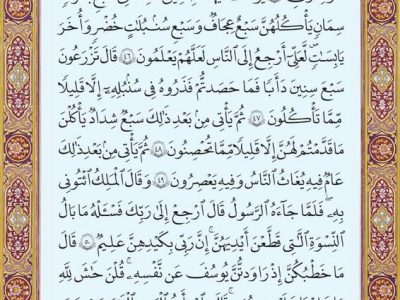 سِمَانٍ يَأْكُلُهُنَّ سَبْعٌ عِجَافٌ وَسَبْعِ سُنۢبُلَٰتٍ خُضْرٍ وَأُخَرَ
يَابِسَٰتٍ لَّعَلِّىٓ أَرْجِعُ إِلَى ٱلنَّاسِ لَعَلَّهُمْ يَعْلَمُونَ ٤٦ قَالَ تَزْرَعُونَ
سَبْعَ سِنِينَ دَأَبًا فَمَا حَصَدتُّمْ فَذَرُوهُ فِى سُنۢبُلِهِۦٓ إِلَّا قَلِيلًا
مِّمَّا تَأْكُلُونَ ٤٧ ثُمَّ يَأْتِى مِنۢ بَعْدِ ذَٰلِكَ سَبْعٌ شِدَادٌ يَأْكُلْنَ
مَا قَدَّمْتُمْ لَهُنَّ إِلَّا قَلِيلًا مِّمَّا تُحْصِنُونَ ٤٨ ثُمَّ يَأْتِى مِنۢ بَعْدِ ذَٰلِكَ
عَامٌ فِيهِ يُغَاثُ ٱلنَّاسُ وَفِيهِ يَعْصِرُونَ ٤٩ وَقَالَ ٱلْمَلِكُ ٱئْتُونِى
بِهِۦ فَلَمَّا جَآءَهُ ٱلرَّسُولُ قَالَ ٱرْجِعْ إِلَىٰ رَبِّكَ فَسْـَٔلْهُ مَا بَالُ
ٱلنِّسْوَةِ ٱلَّٰتِى قَطَّعْنَ أَيْدِيَهُنَّ إِنَّ رَبِّى بِكَيْدِهِنَّ عَلِيمٌ ٥٠ قَالَ
مَا خَطْبُكُنَّ إِذْ رَٰوَدتُّنَّ يُوسُفَ عَن نَّفْسِهِۦ قُلْنَ حَٰشَ لِلَّهِ